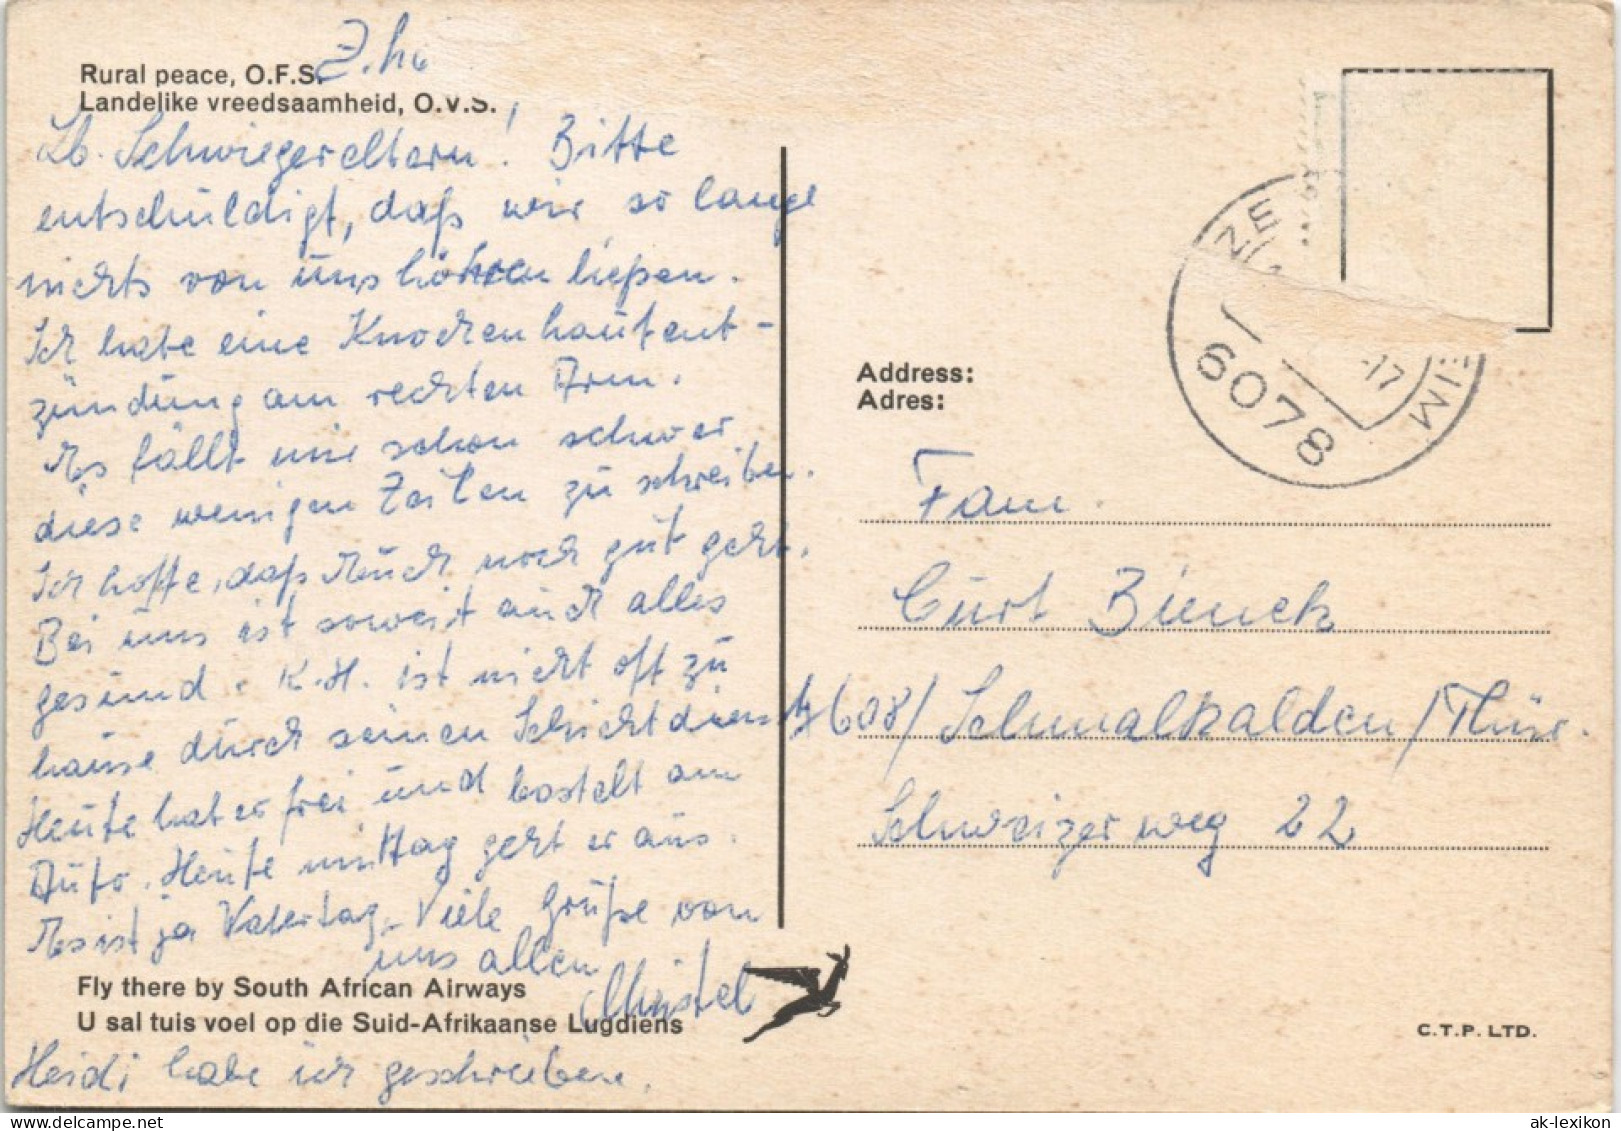 Rural peace, O.F.S.
Landelike vreedsaamheid, O.V.S.
Lb. Schwiegereltern! Bitte
entschuldigt, daß wir so lange
nichts von uns hören ließen.
Ich habe eine Knochenhautent-
zündung am rechten Arm.
Es fällt mir schon schwer
diese wenigen Zeilen zu schreiben.
Ich hoffe, daß Euch noch gut geht.
Bei uns ist soweit auch alles
gesund. K.H. ist nicht oft zu
hause durch seinen Schichtdienst
Heute hat er frei und bastelt am
Auto. Heute mittag geht er aus.
Es ist ja Vatertag. Viele Grüße von
uns allen
Christel
Fly there by South African Airways
U sal tuis voel op die Suid-Afrikaanse Lugdiens
Heidi habe ich geschrieben.
ZE
EIM
-17
6078
Address:
Adres:
Fam.
Curt Bieneck
608/Schmalkalden/Thür.
Schweizer weg 22
C.T.P. LTD.
delcampe.net
ak-lexikon